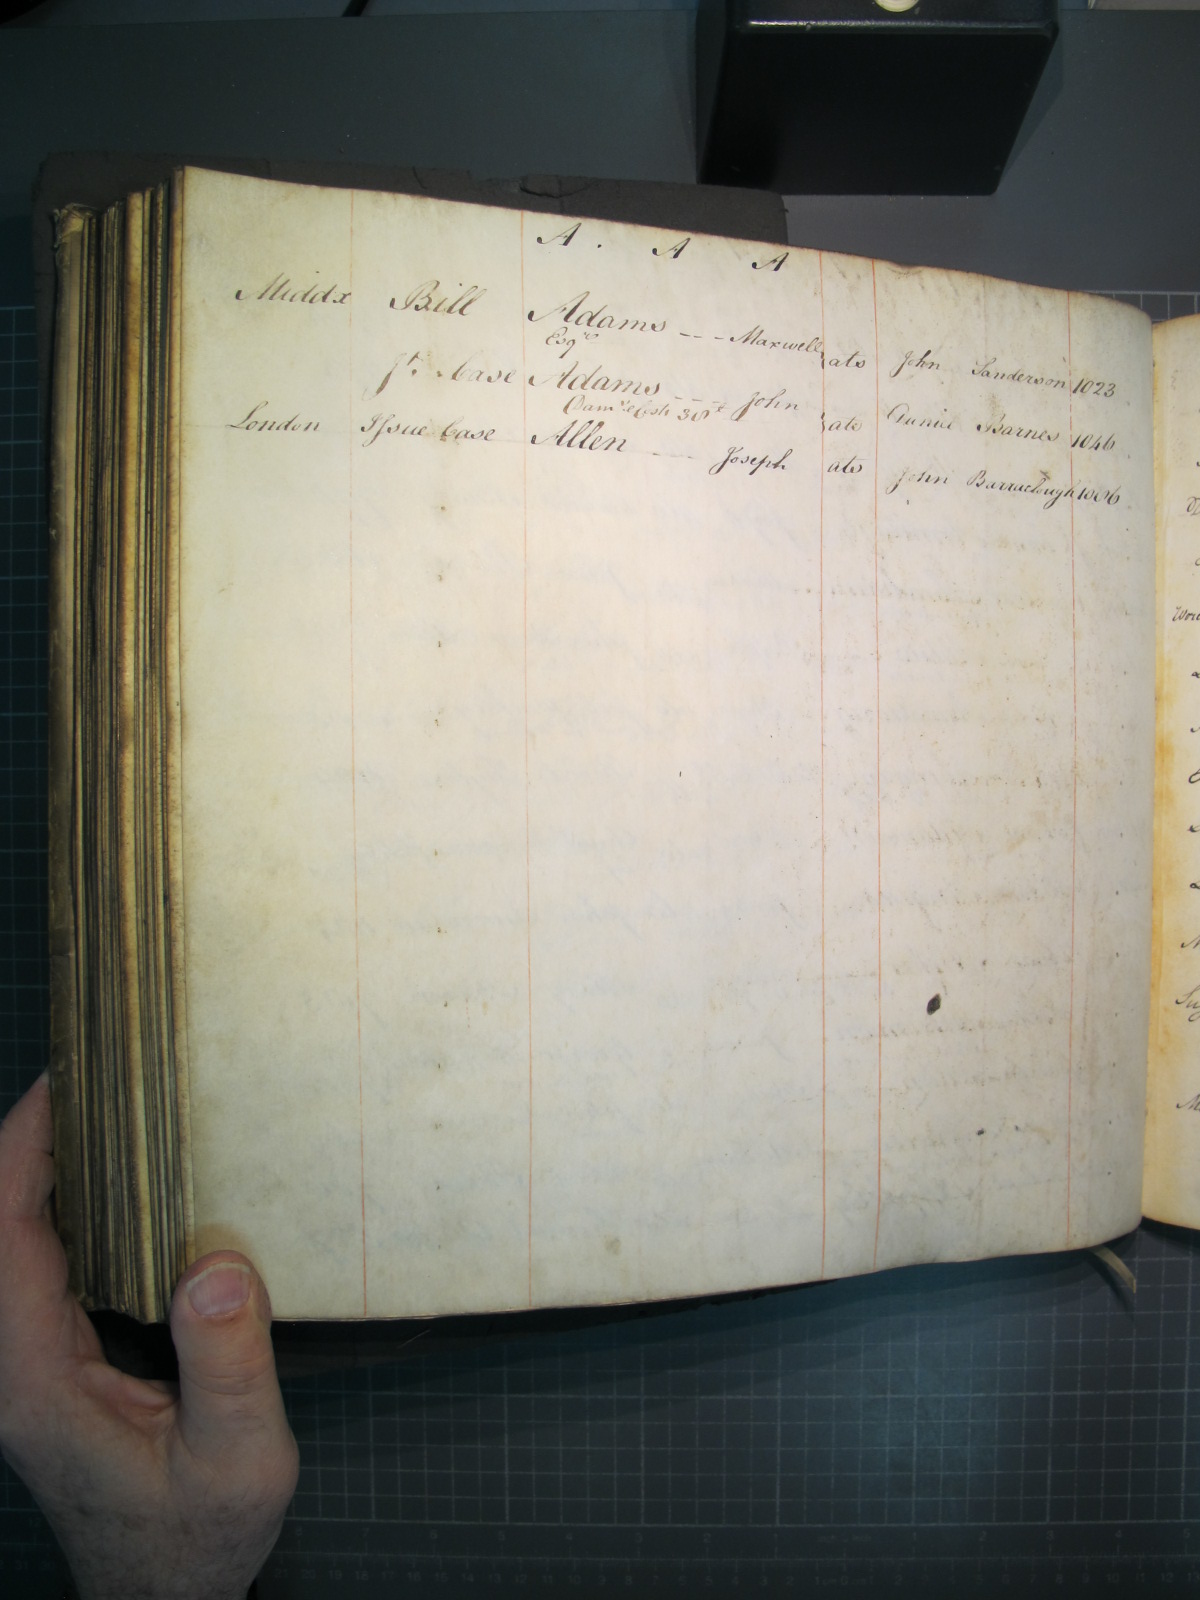 A . A A
Middx Bill Adams --- Maxwell ats John Sanderson 1023
Esqre
Jt. Case Adams --- John ats Barnes 1046
30s
London Issue Case Allen --- Joseph ats John Barraclough